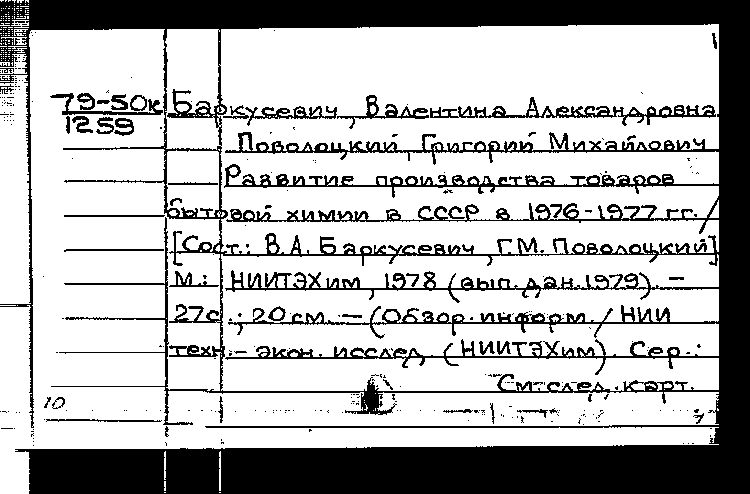 79-50к Баркусевич, Валентина Александровна
1259
Поволоцкий, Григорий Михайлович
Развитие производства товаров
бытовой химии в СССР в 1976-1977 гг. /
[Сост.: В.А. Баркусевич, Г.М. Поволоцкий]
М.: НИИТЭХим, 1978 (вып. дан. 1979). —
27с.; 20 см. — (Обзор. информ. / НИИ
техн.- экон. исслед. (НИИТЭХим). Сер.:
См. след. карт.
10